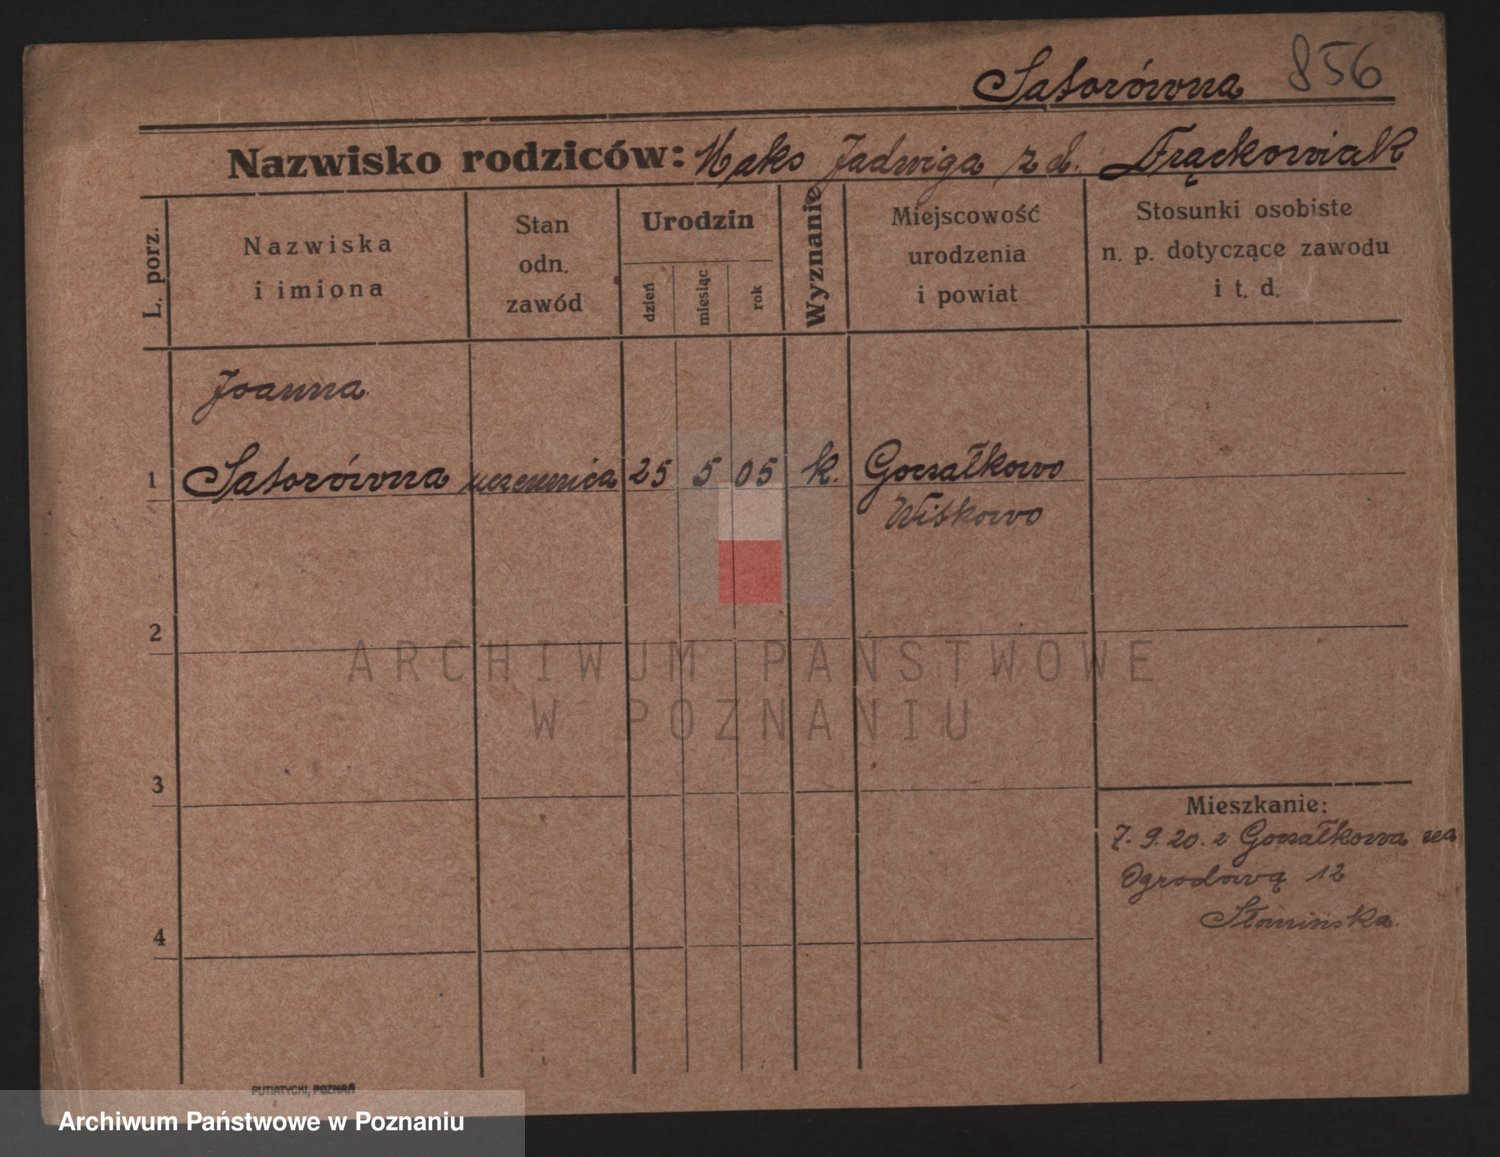 Satorówna 856
Nazwisko rodziców: Maks Jadwiga z d. Frąckowiak
L. porz.
Nazwiska
i imiona
Stan
odn.
zawód
Urodzin
dzień
miesiąc
rok
Wyznanie
Miejscowość
urodzenia
i powiat
Stosunki osobiste
n. p. dotyczące zawodu
i t. d.
Joanna
1 Satorówna uczennica 25 5 05 k. Goczałkowo
Witkowo
2
ARCHIWUM PAŃSTWOWE
W POZNANIU
3
Mieszkanie:
7. 9. 20. z Goczałkowa na
Ogrodową 12
Słomińska.
4
PUTIATYCKI, POZNAŃ
Archiwum Państwowe w Poznaniu